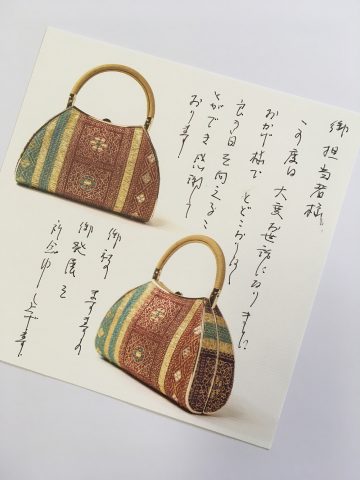 御担当者様
この度は大変お世話になりました
おかげ様でとどこおりなく
良き日を迎えるこ
とができ感謝して
おります。
御社のますますの
御発展を
祈念申し上げます。